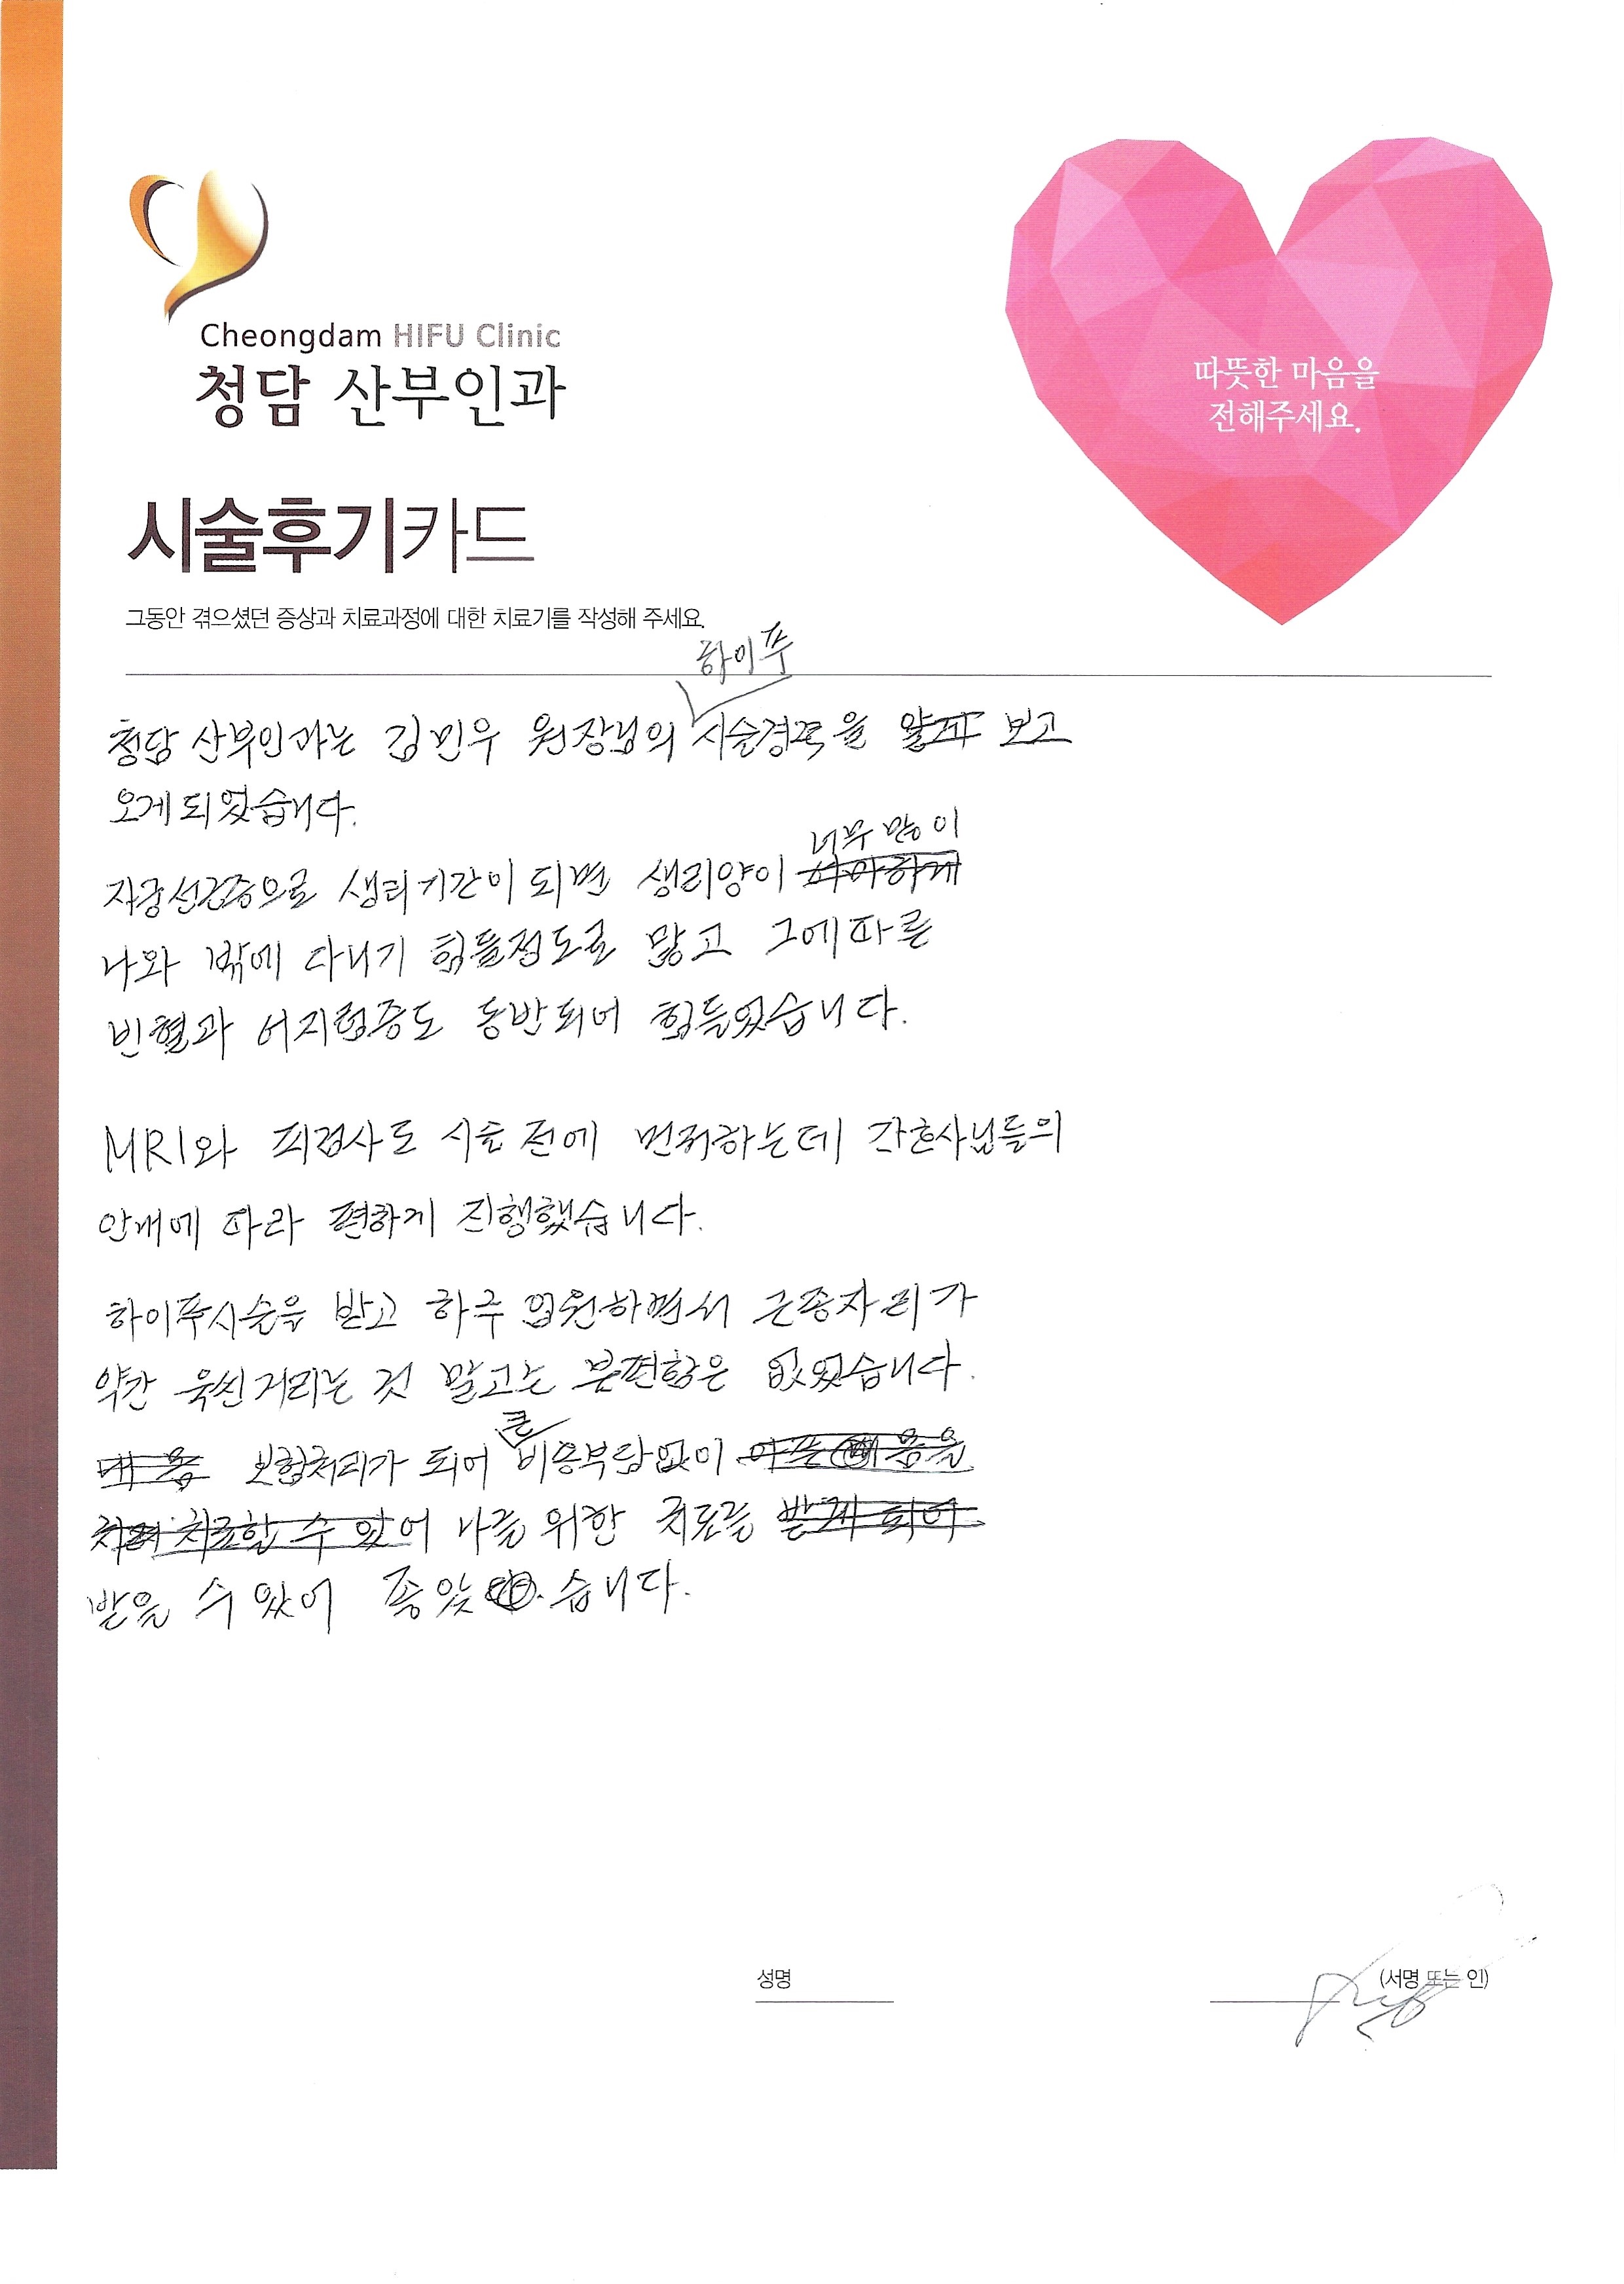 Cheongdam HIFU Clinic
청담 산부인과
따뜻한 마음을
전해주세요.
시술후기카드
그동안 겪으셨던 증상과 치료과정에 대한 치료기를 작성해 주세요.
하이푸
청담 산부인과는 김민우 원장님의 시술경력을 보고
오게 되었습니다.
너무 많이
자궁선근증으로 생리기간이 되면 생리양이
나와 밖에 다니기 힘들정도로 많고 그에따른
빈혈과 어지럼증도 동반되어 힘들었습니다.
MRI와 피검사도 시술 전에 먼저하는데 간호사님들의
안내에 따라 편하게 진행했습니다.
하이푸시술을 받고 하루 입원하면서 근종자리가
약간 욱신거리는 것 말고는 불편함은 없었습니다.
큰
보험처리가 되어 비용부담없이
나를 위한 치료를
받을 수 있어 좋았습니다.
성명
(서명 또는 인)